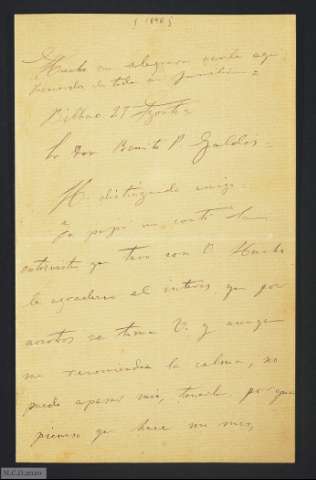 [1898]
Mucho me alegrara
de toda su familia =
Bilbao 27 Agosto
Sr Don Benito P. Galdós =
M. distinguido amigo
papá me contó la
entrevista que tuvo con V. Mucho
le agradezco el interes que por
nosotros se toma V. y aunque
me recomienda la calma, no
puedo apesar mio, tenerla, porque
pienso que hace un mes,